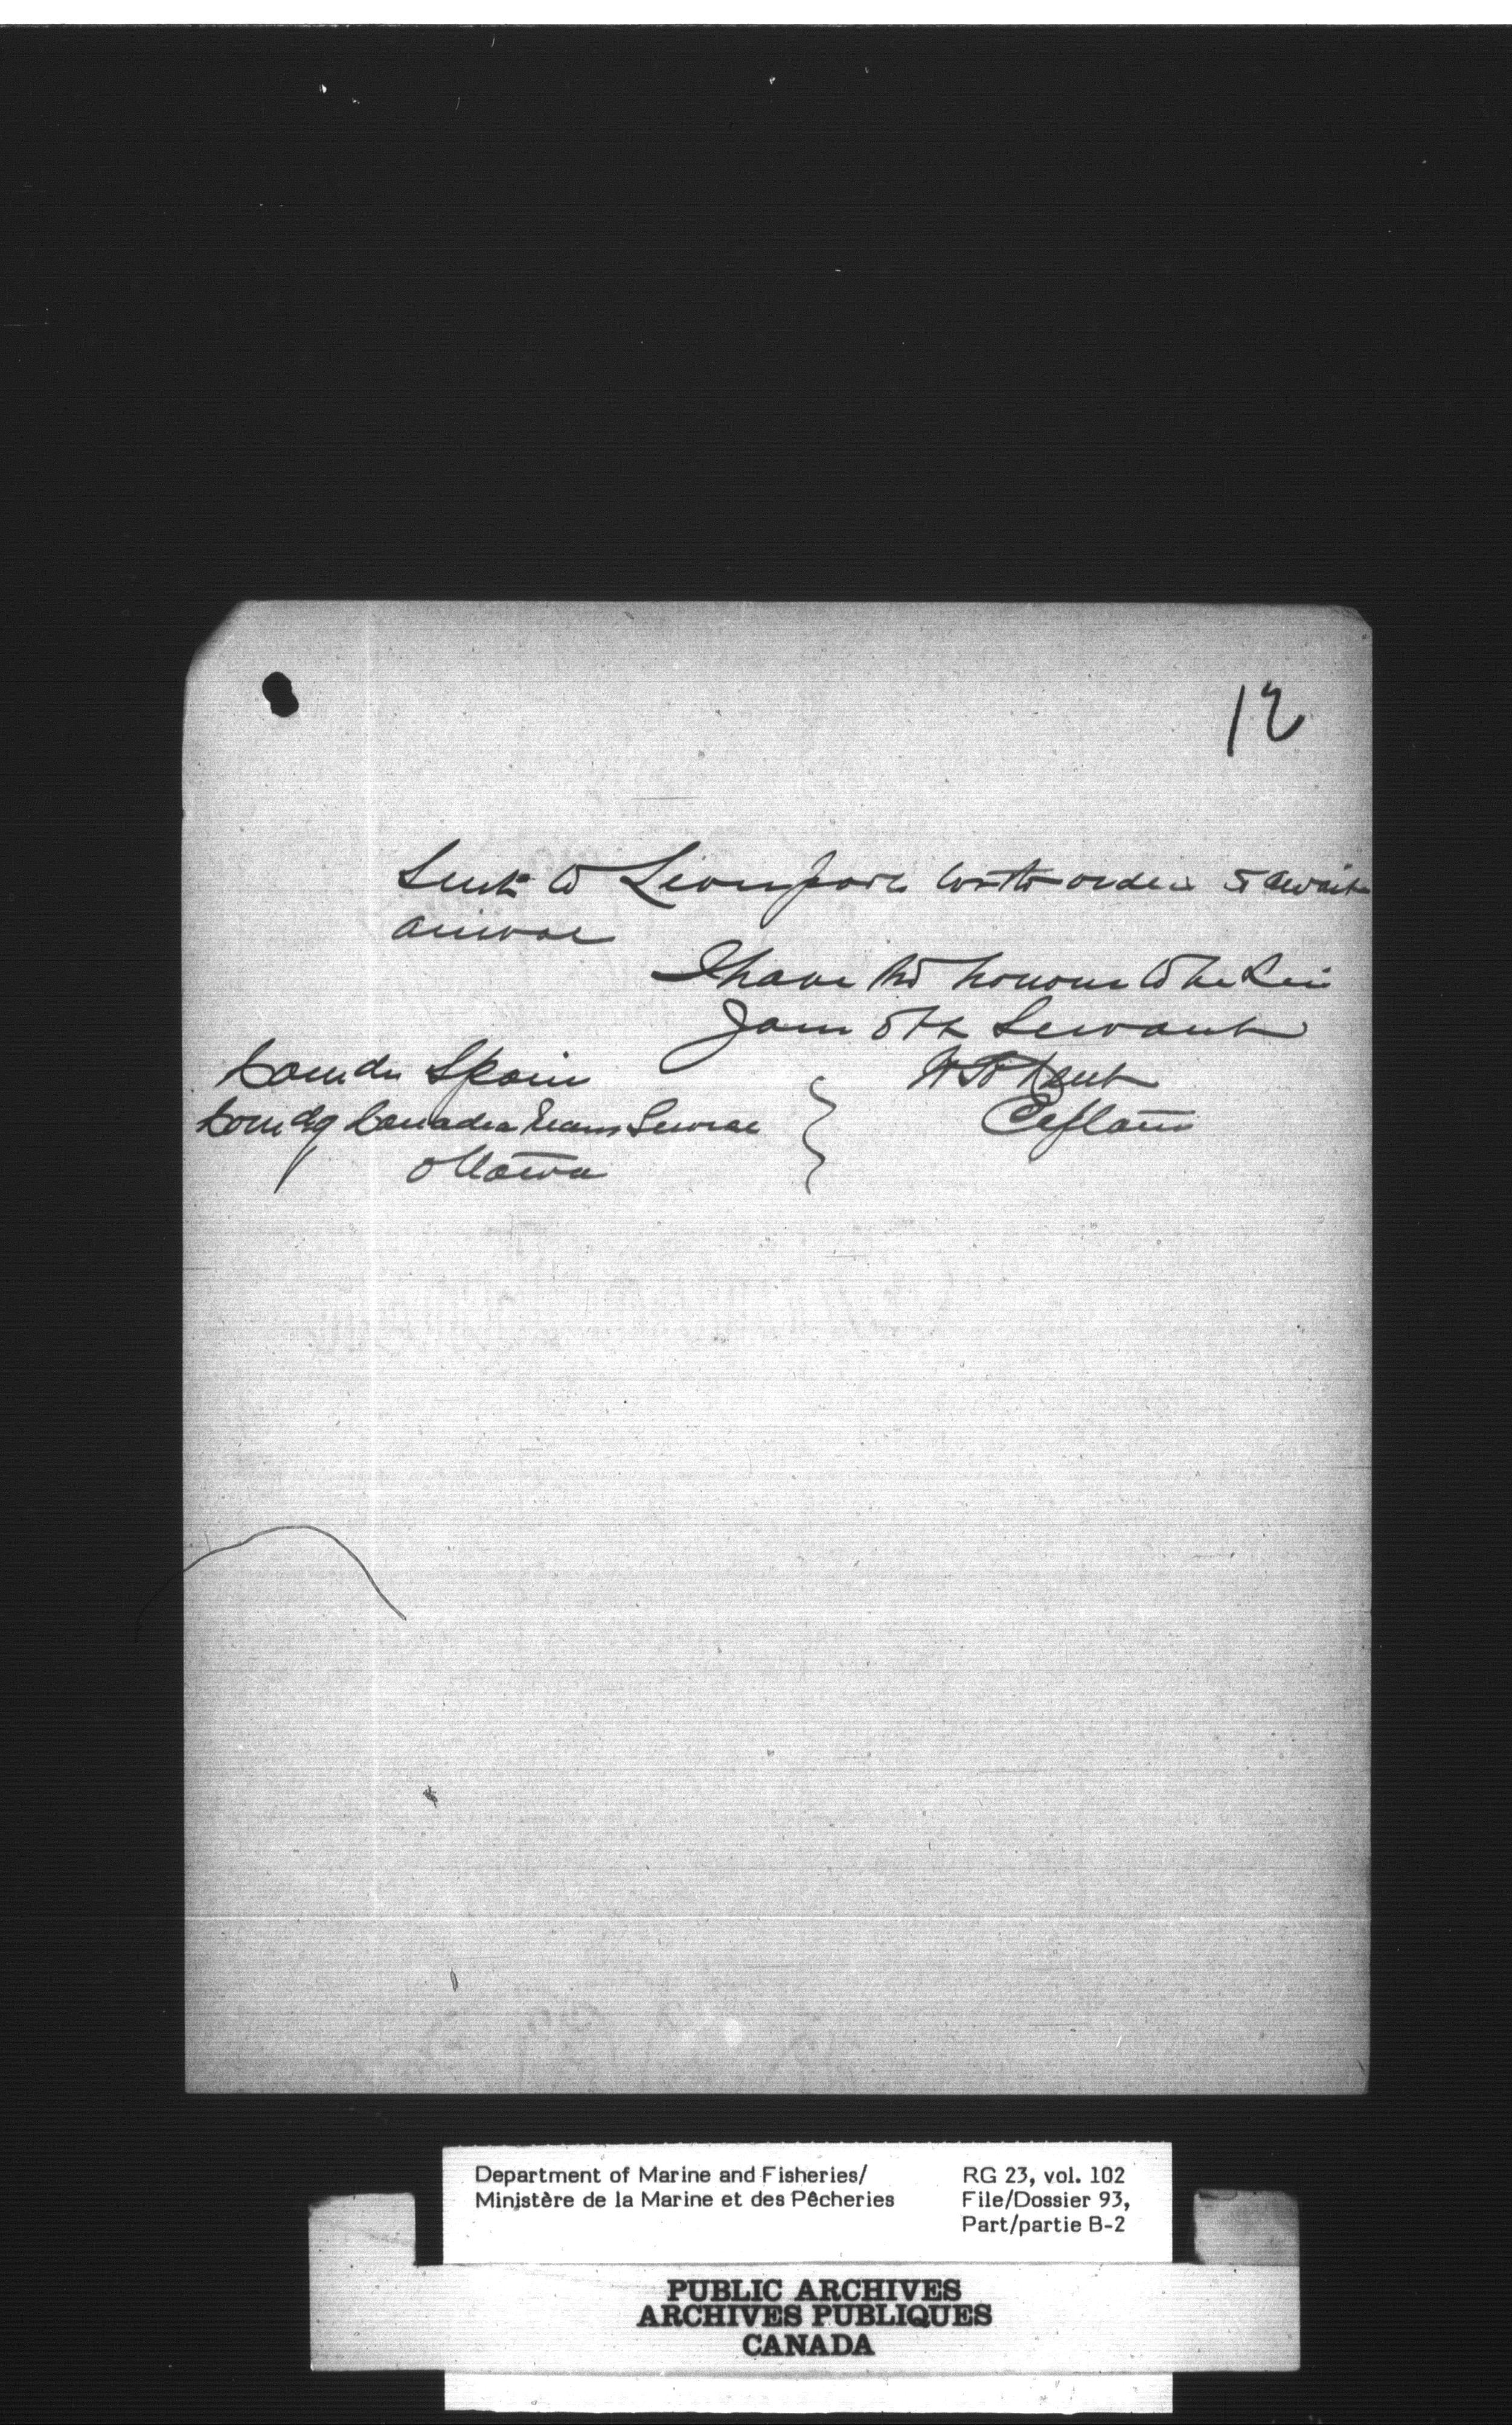 12
Sent to Liverpool with orders to await
arrival
I have the honour to be Sir
Your Obt Servant
Comdr Spain
W H Kent
Comdg Canadian Servise
Captain
Ottawa
Department of Marine and Fisheries/
Ministère de la Marine et des Pêcheries
RG 23, vol. 102
File/Dossier 93,
Part/partie B-2
PUBLIC ARCHIVES
ARCHIVES PUBLIQUES
CANADA